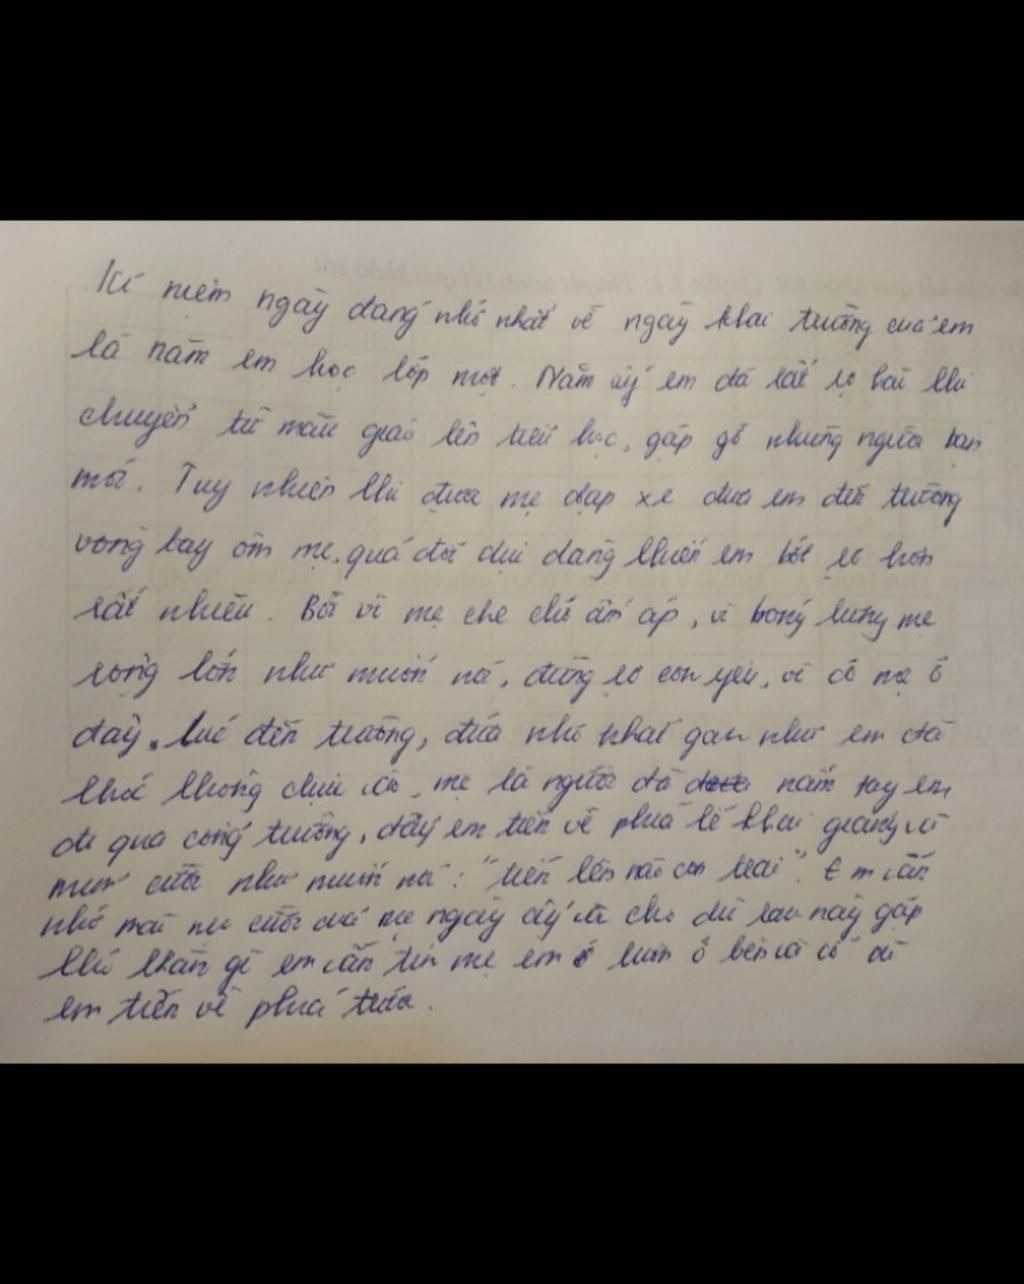 Kỉ niệm ngày đáng nhớ nhất về ngày khai trường của em
là năm em học lớp một. Năm ấy em đã rất lo âu khi
chuyển từ mẫu giáo lên tiểu học, gặp gỡ những người bạn
mới. Tuy nhiên khi được mẹ đạp xe đưa em đến trường
vòng tay ôm mẹ, quá đỗi dịu dàng khiến em bớt lo hơn
rất nhiều. Bởi vì mẹ che chở ấm áp, vì bóng lưng mẹ
rộng lớn như muốn nói, đừng lo con yêu, vì có mẹ ở
đây. Lúc đến trường, đứa nhỏ nhát gan như em đã
khóc không chịu vào, mẹ là người đã nắm tay em
đi qua cổng trường, đẩy em tiến về phía lễ khai giảng và
mỉm cười như muốn nói: "tiến lên nào con trai". Em vẫn
nhớ mãi nụ cười của mẹ ngày ấy và cho dù sau này gặp
khó khăn gì em vẫn tin mẹ em luôn ở bên và cổ vũ
em tiến về phía trước.